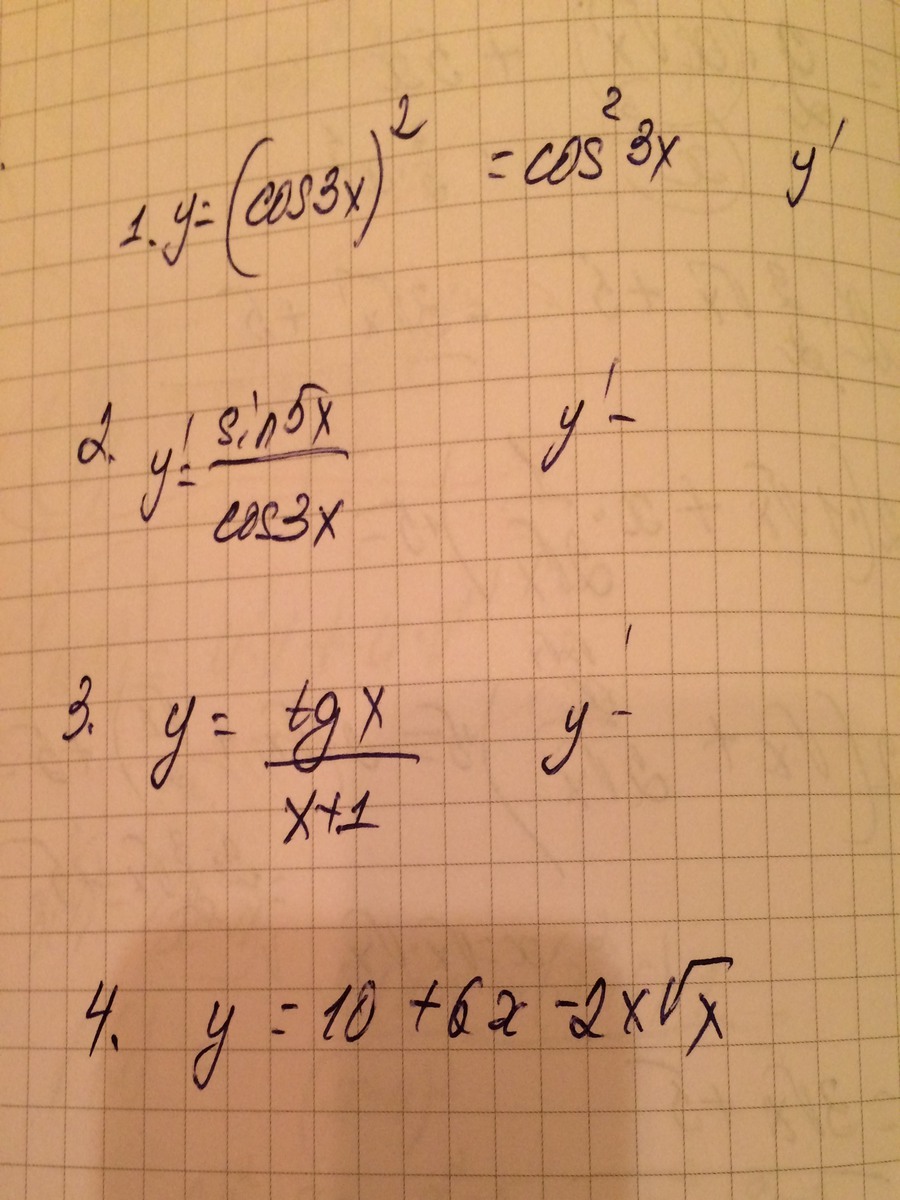 1. y = (cos3x)² = cos² 3x y'
2. y' = sin5x / cos3x y' -
3. y = tg x / x+1 y' -
4. y = 10 + 6x - 2x√x